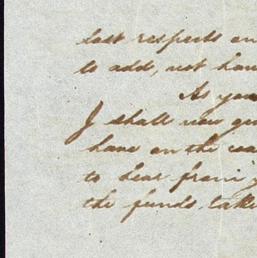 last respects on
to add, not hav
As you
I shall now
have on the
to hear from y
the funds take